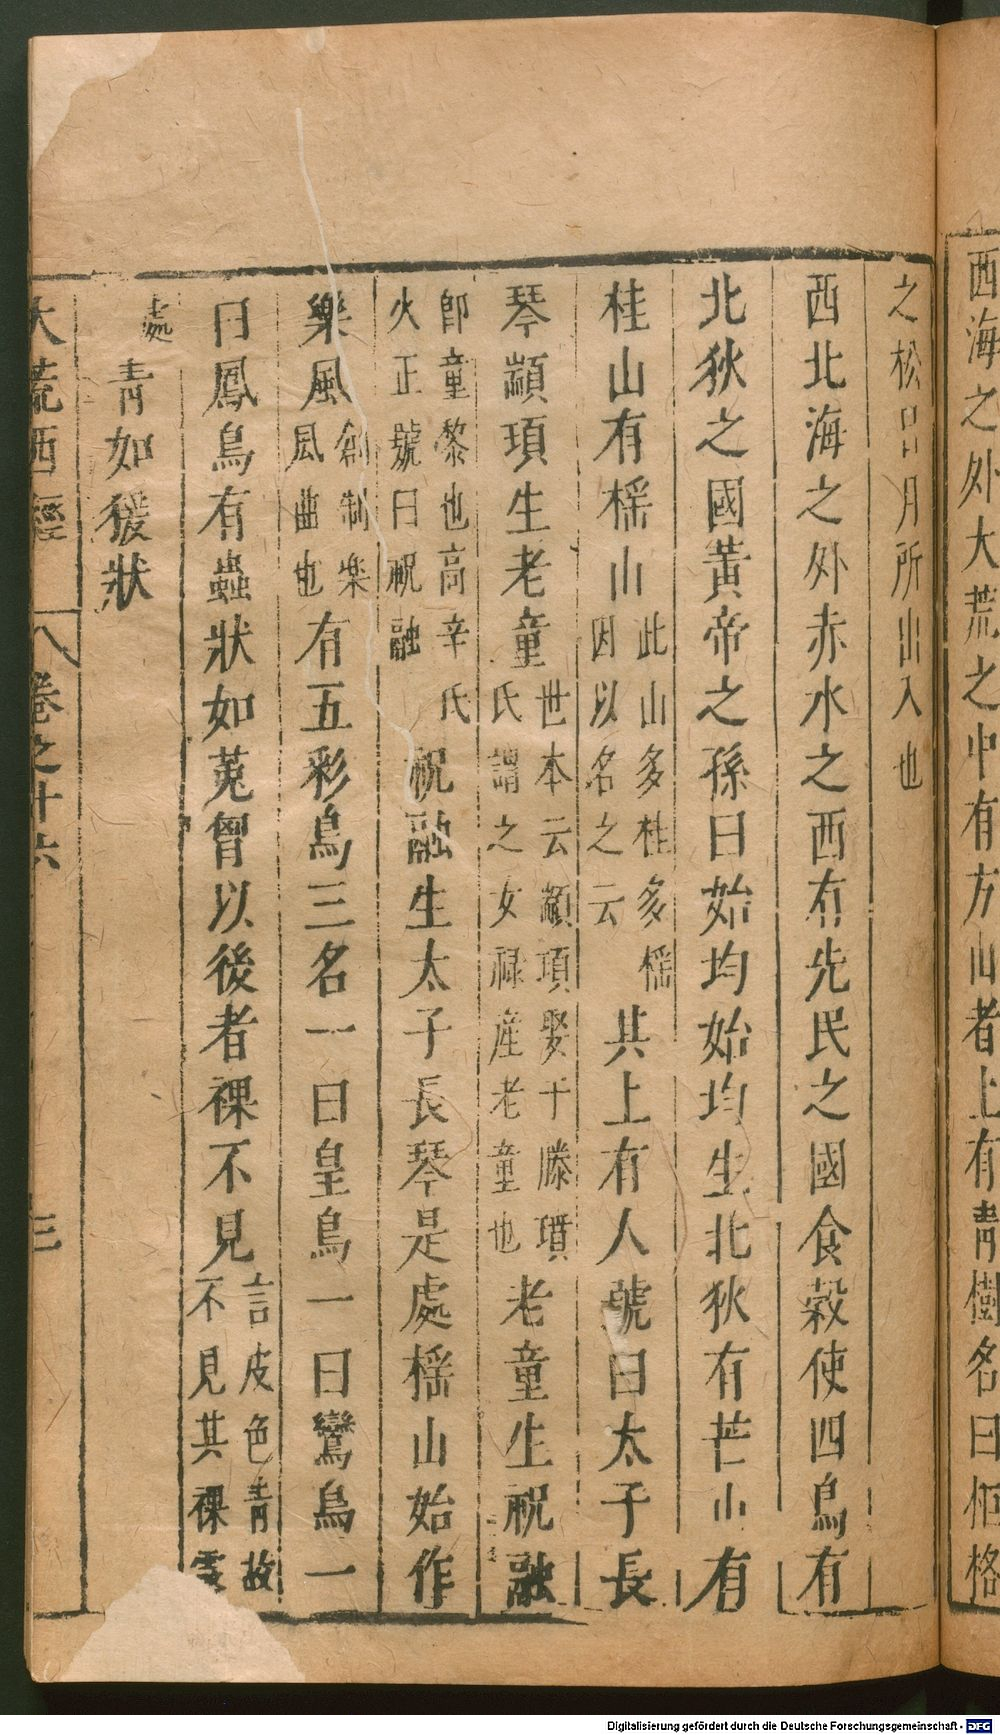 西海之外大荒之中有方山者上有青樹名曰柜格
之松日月所出入也
西北海之外赤水之西有先民之國食穀使四鳥有
北狄之國黃帝之孫曰始均始均生北狄有芒山有
桂山有榣山此山多桂多榣因以名之云其上有人號曰太子長
琴顓頊生老童世本云顓頊娶于滕𡍼氏謂之女祿產老童也老童生祝融
即童黎也高辛氏火正號曰祝融祝融生太子長琴是處榣山始作
樂風創制樂風曲也有五彩鳥三名一曰皇鳥一曰鸞鳥一
曰鳳鳥有蟲狀如菟胷以後者裸不見言皮色青故不見其裸露
處青如猨狀
大荒西經 卷之十六 三
Digitalisierung gefördert durch die Deutsche Forschungsgemeinschaft - DFG